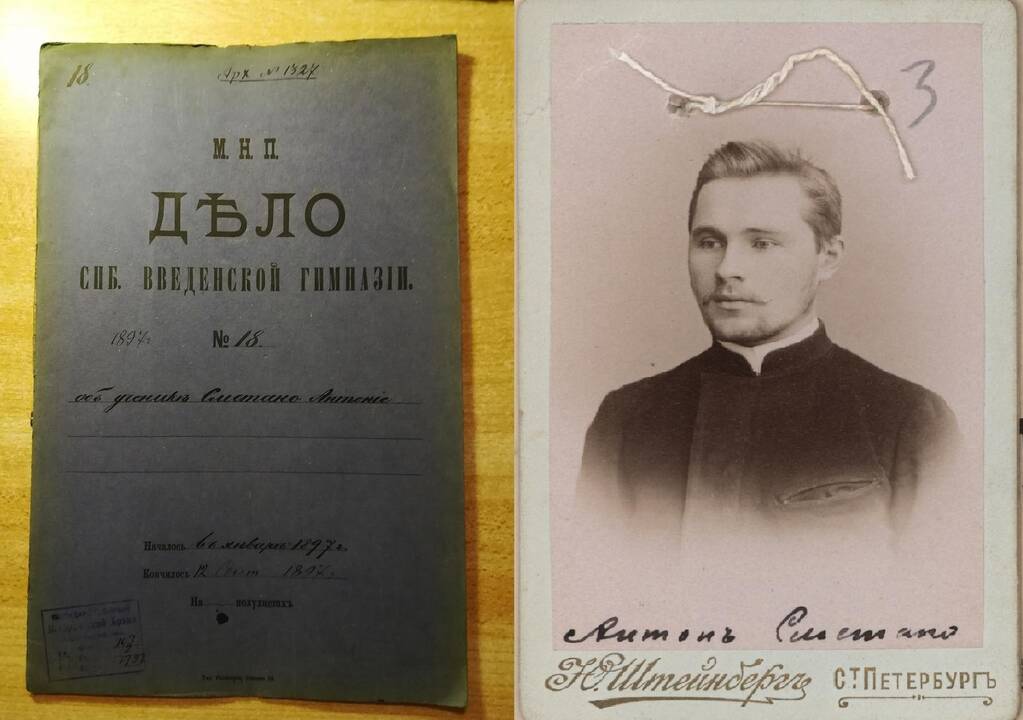 18.
Арх № 1327
М. Н. П.
ДѢЛО
СПБ. ВВЕДЕНСКОЙ ГИМНАЗІИ.
1897 г.
№ 18.
объ ученикѣ Сметано Антоніѣ
Началось въ январѣ 1897 г.
Кончилось 12 Сент 1897 г.
На полулистахъ
3
Антонъ Сметано
Н. Штейнбергъ
СТ ПЕТЕРБУРГЪ